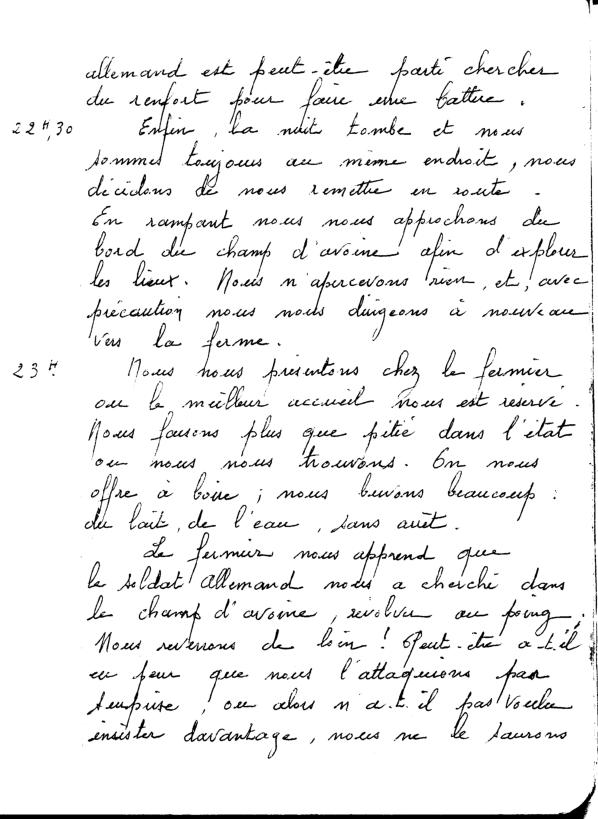 allemand est peut-être parti chercher
du renfort pour faire une battue.
22H,30 Enfin, la nuit tombe et nous
sommes toujours au même endroit, nous
décidons de nous remettre en route.
En rampant nous nous approchons du
bord du champ d'avoine afin d'explorer
les lieux. Nous n'apercevons rien, et, avec
précaution nous nous dirigeons à nouveau
vers la ferme.
23H. Nous nous présentons chez le fermier
ou le meilleur accueil nous est réservé.
Nous faisons plus que pitié dans l'état
ou nous nous trouvons. On nous
offre à boire ; nous buvons beaucoup :
du lait, de l'eau, sans arrêt.
Le fermier nous apprend que
le soldat Allemand nous a cherché dans
le champ d'avoine, révolver au poing.
Nous revenons de loin ! Peut-être a-t-il
eu peur que nous l'attaquions par
surprise, ou alors n'a-t-il pas voulu
insister davantage, nous ne le saurons